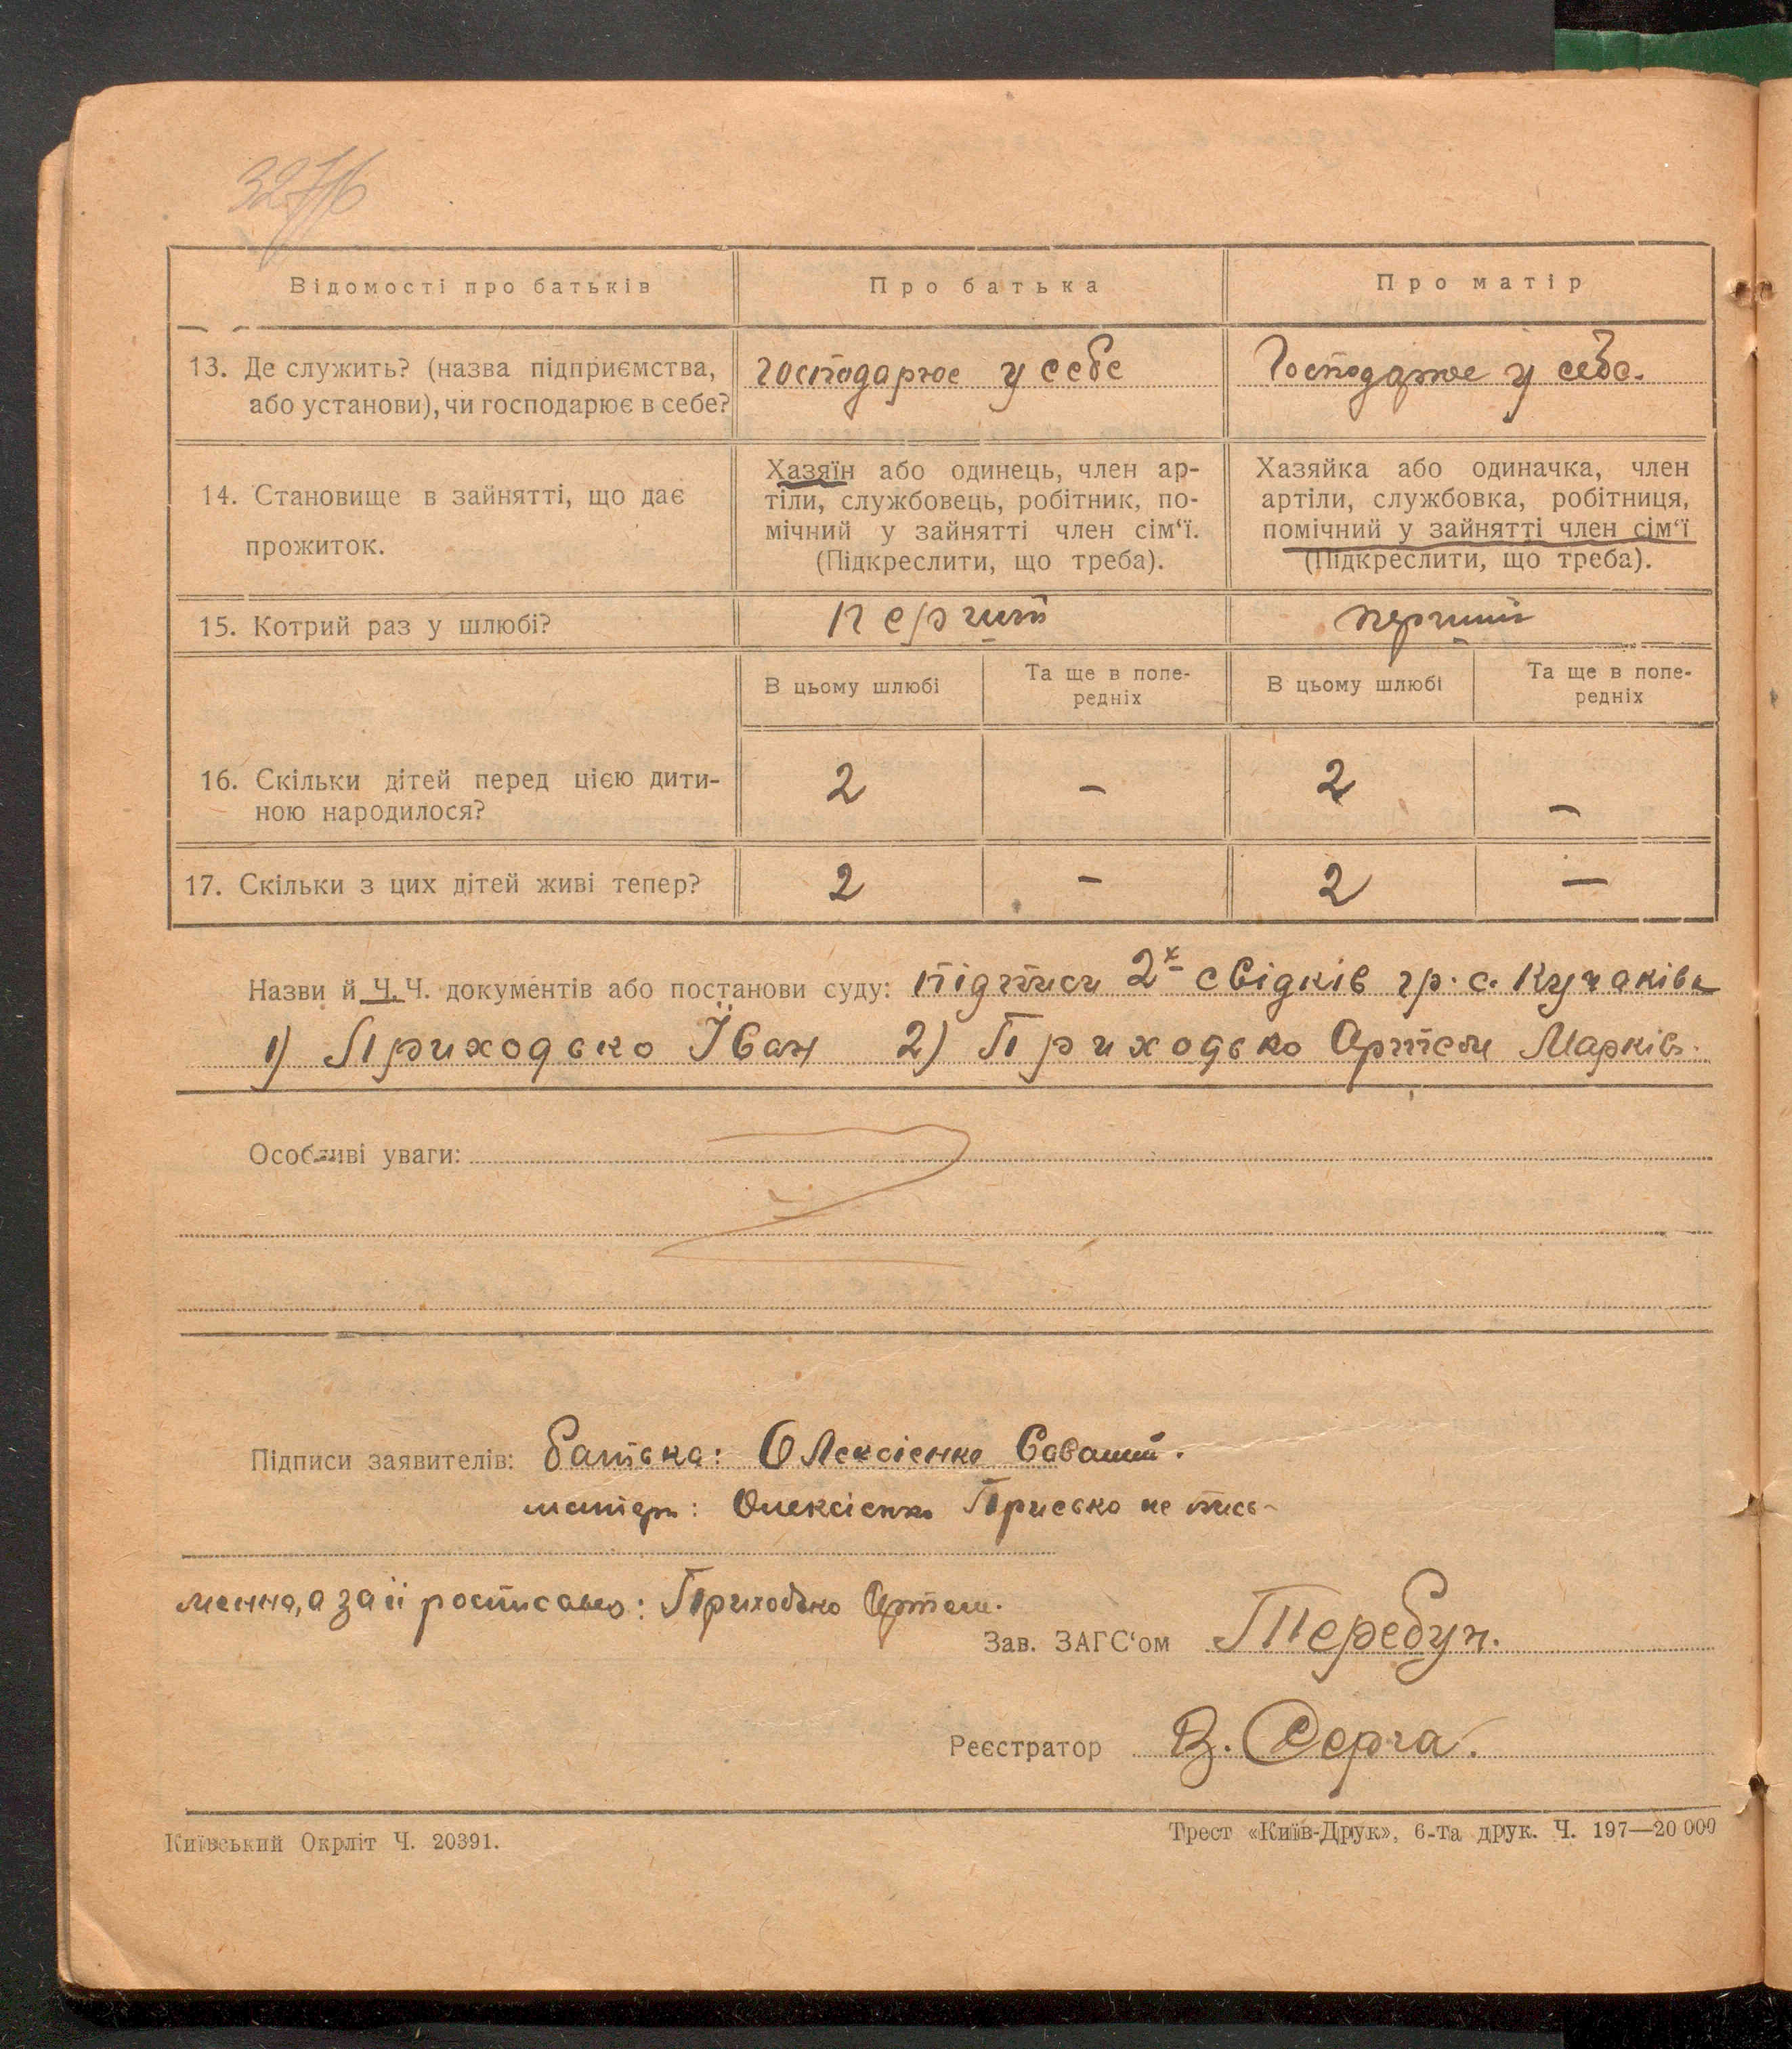 Відомості про батьків Про батька Про матір
13. Де служить? (назва підприємства, або установи), чи господарює в себе?
господарює у себе
Господарює у себе.
14. Становище в зайнятті, що дає
прожиток.
Хазяїн або одинець, член ар-
тіли, службовець, робітник, по-
мічний у зайнятті член сім‘ї.
(Підкреслити, що треба).
Хазяйка або одиначка, член
артіли, службовка, робітниця,
помічний у зайнятті член сім‘ї
(Підкреслити, що треба).
15. Котрий раз у шлюбі? перший перший
В цьому шлюбі Та ще в попе-
редніх
В цьому шлюбі Та ще в попе-
редніх
16. Скільки дітей перед цією дити-
ною народилося?
2 – 2 –
17. Скільки з цих дітей живі тепер? 2 – 2 –
Назви й Ч.Ч. документів або постанови суду: підписи 2х свідків гр. с. Кучаків
1) Приходько Іван 2) Приходько Артем Марків.
Особливі уваги:
Підписи заявителів: батька: Олексієнко Саватій.
матери: Олексієнко Приська не пись-
менна, а за її росписався: Приходько Артем.
Зав. ЗАГС‘ом Теребун.
Реєстратор В. Серга.
Київський Окрліт Ч. 20391.
Трест «Київ-Друк», 6-та друк. Ч. 197—20 000